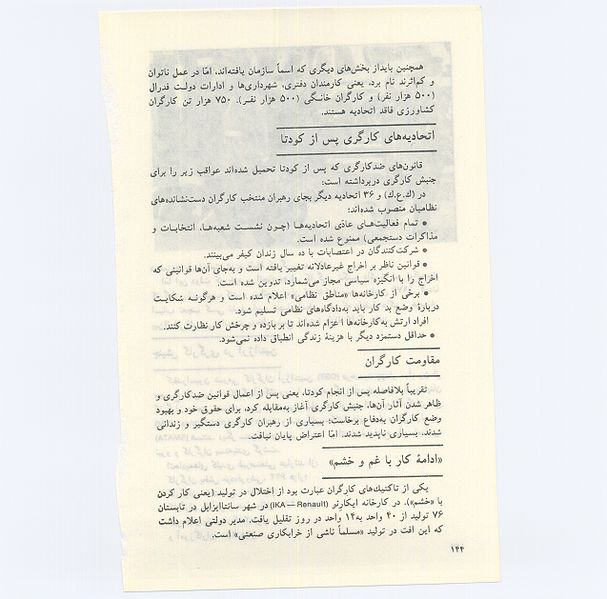 همچنین باید از بخش‌های دیگری که اسماً سازمان یافته‌اند، امّا در عمل ناتوان
و کم‌اثرند نام برد، یعنی کارمندان دفتری، شهرداری‌ها و ادارات دولت فدرال
(۵۰۰ هزار نفر) و کارگران خانگی (۵۰۰ هزار نفر). ۷۵۰ هزار تن کارگران
کشاورزی فاقد اتحادیه هستند.
اتحادیه‌های کارگری پس از کودتا
قانون‌های ضدکارگری که پس از کودتا تحمیل شده‌اند عواقب زیر را برای
جنبش کارگری دربرداشته است:
در (ك.ع.ك) و ۳۶ اتحادیه دیگر بجای رهبران منتخب کارگران دست‌نشانده‌های
نظامیان منصوب شده‌اند؛
● تمام فعالیت‌های عادّی اتحادیه‌ها (چون نشست شعبه‌ها، انتخابات و
مذاکرات دستجمعی) ممنوع شده است.
● شرکت‌کنندگان در اعتصابات با ده سال زندان کیفر می‌بینند.
● قوانین ناظر بر اخراج غیرعادلانه تغییر یافته است و به‌جای آن‌ها قوانینی که
اخراج را با انگیزه سیاسی مجاز می‌شمارد، تدوین شده است.
● برخی از کارخانه‌ها «مناطق نظامی» اعلام شده است و هرگونه شکایت
دربارهٔ وضع بد کار باید به‌دادگاه‌های نظامی تسلیم شود.
افراد ارتش به‌کارخانه‌ها اعزام شده‌اند تا بر بازده و چرخش کار نظارت کنند.
● حداقل دستمزد دیگر با هزینهٔ زندگی انطباق داده نمی‌شود.
مقاومت کارگران
تقریباً بلافاصله پس از انجام کودتا، یعنی پس از اعمال قوانین ضدکارگری و
ظاهر شدن آثار آن‌ها، جنبش کارگری آغاز به‌مقابله کرد، برای حقوق خود و بهبود
وضع کارگران به‌دفاع برخاست؛ بسیاری از رهبران کارگری دستگیر و زندانی
شدند، بسیاری ناپدید شدند. امّا اعتراض پایان نیافت.
«ادامهٔ کار با غم و خشم»
یکی از تاکتیك‌های کارگران عبارت بود از اختلال در تولید (یعنی کار کردن
با «خشم»). در کارخانه ایکارنو (IKA — Renault) در شهر سانتاایزابل در تابستان
۷۶ تولید از ۴۰ واحد به۱۴ واحد در روز تقلیل یافت. مدیر دولتی اعلام داشت
که این افت در تولید «مسلماً ناشی از خرابکاری صنعتی» است.
۱۴۴